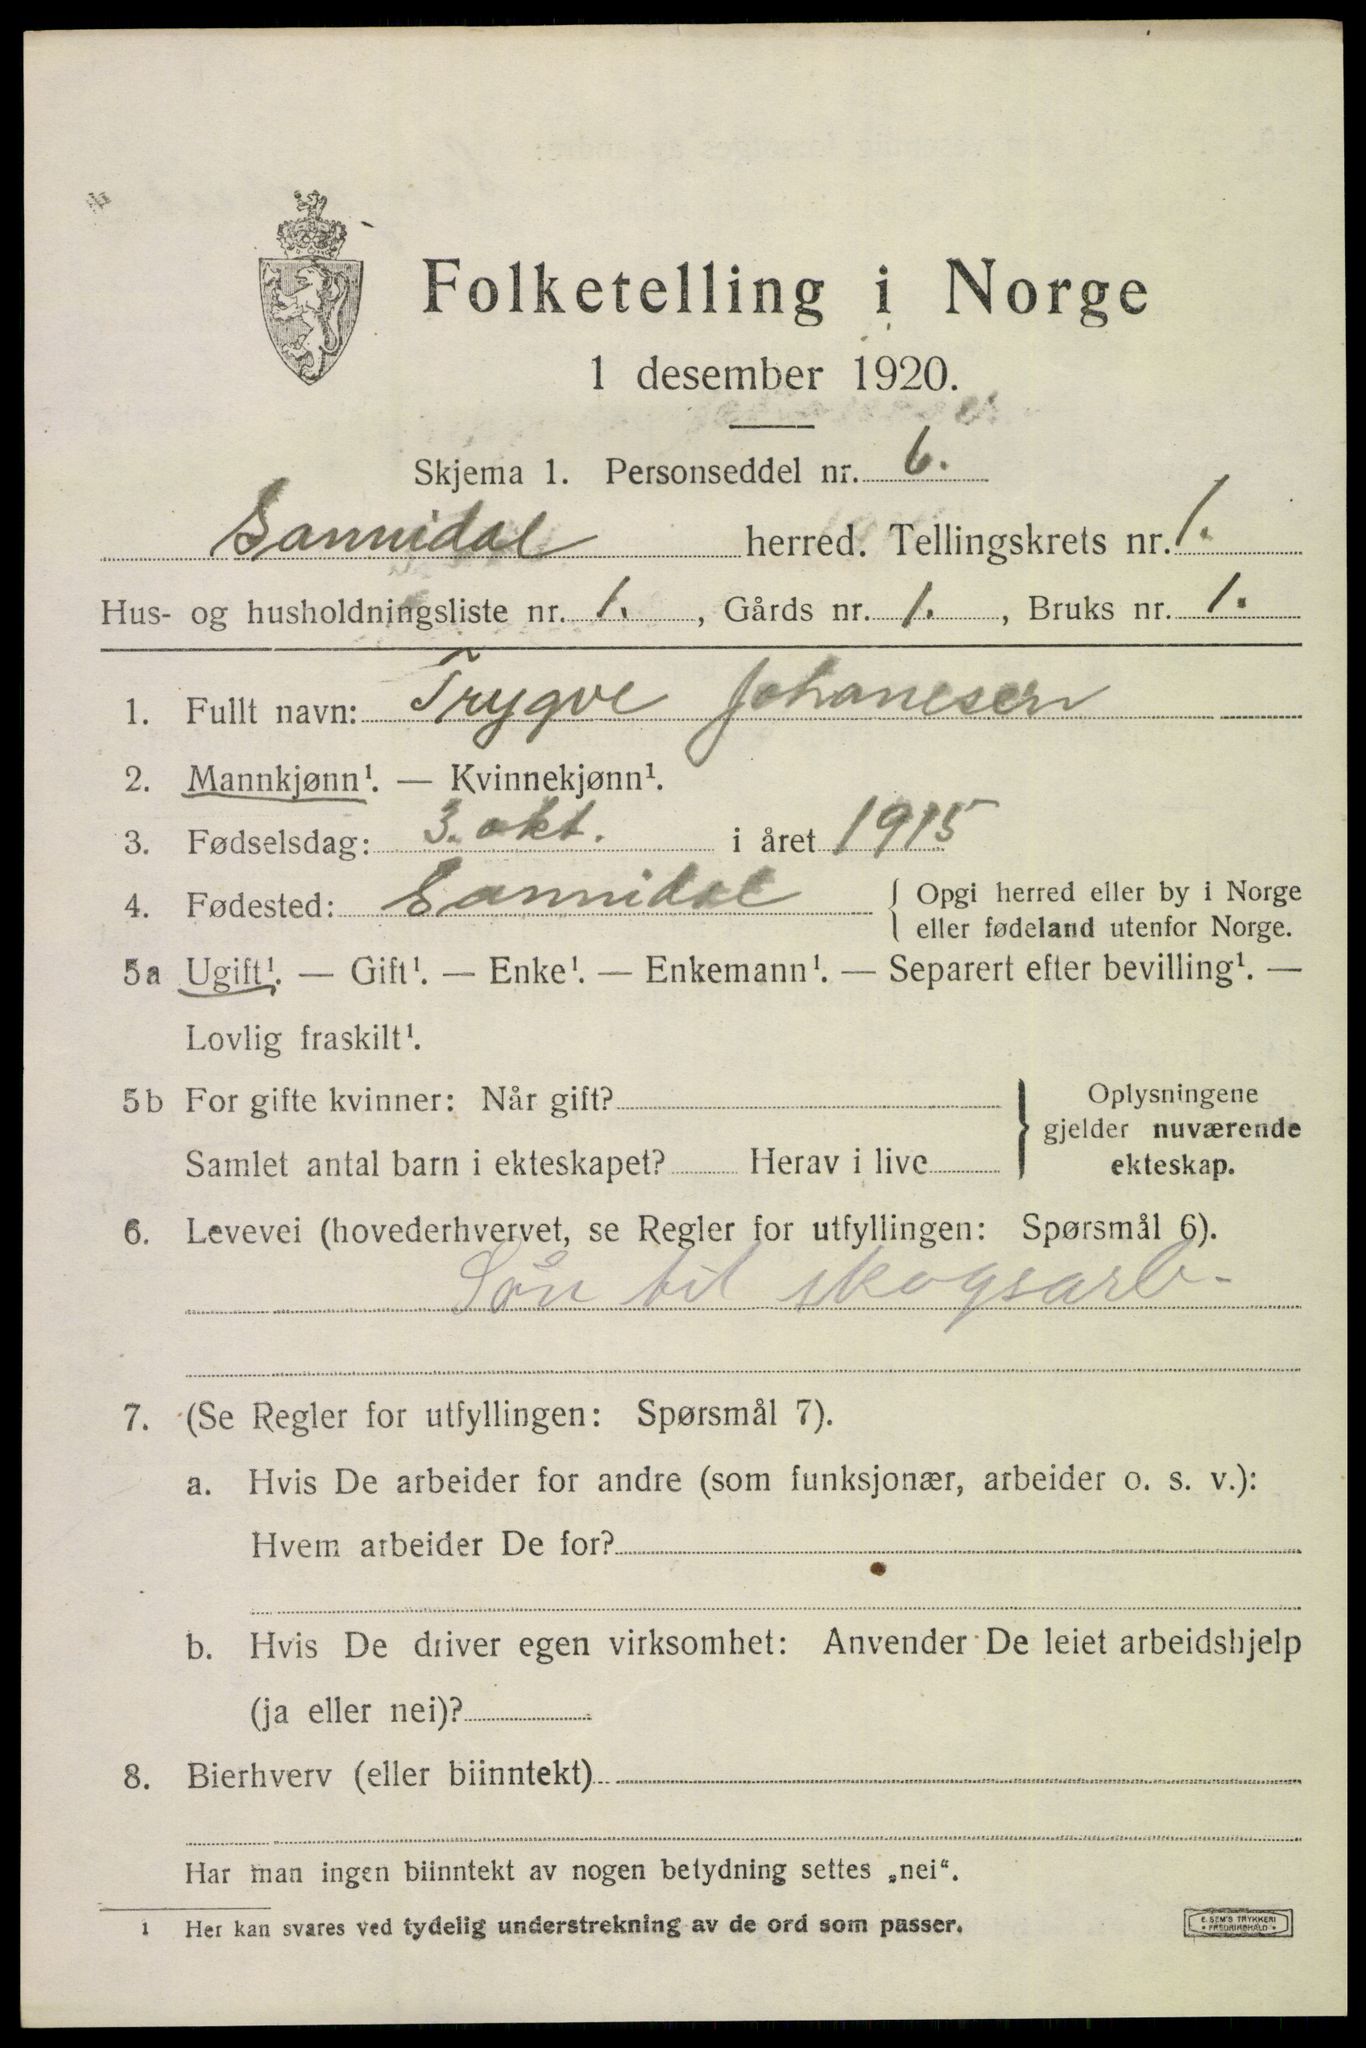 Folketelling i Norge
1 desember 1920.
Skjema 1. Personseddel nr. 6.
Sannidal herred. Tellingskrets nr. 1.
Hus- og husholdningsliste nr. 1., Gårds nr. 1., Bruks nr. 1.
1. Fullt navn: Trygve Johanesen
2. Mannkjønn¹. — Kvinnekjønn¹.
3. Fødselsdag: 3. okt. i året 1915
4. Fødested: Sannidal { Opgi herred eller by i Norge
eller fødeland utenfor Norge.
5a Ugift¹. — Gift¹. — Enke¹. — Enkemann¹. — Separert efter bevilling¹. —
Lovlig fraskilt¹.
5b For gifte kvinner: Når gift? } Oplysningene
gjelder nuværende
Samlet antal barn i ekteskapet? Herav i live ekteskap.
6. Levevei (hovederhvervet, se Regler for utfyllingen: Spørsmål 6).
Søn til skogsarb.
7. (Se Regler for utfyllingen: Spørsmål 7).
a. Hvis De arbeider for andre (som funksjonær, arbeider o. s. v.):
Hvem arbeider De for?
b. Hvis De driver egen virksomhet: Anvender De leiet arbeidshjelp
(ja eller nei)?
8. Bierhverv (eller biinntekt)
Har man ingen biinntekt av nogen betydning settes „nei“.
1 Her kan svares ved tydelig understrekning av de ord som passer.
E. SEM'S TRYKKERI
FREDRIKSHALD